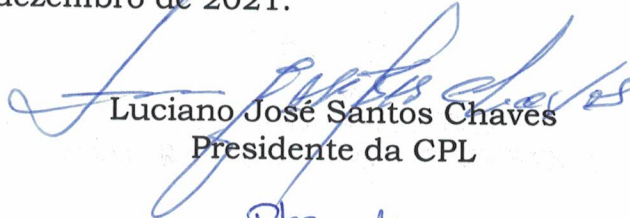 dezembro de 2021.
Luciano José Santos Chaves
Presidente da CPL